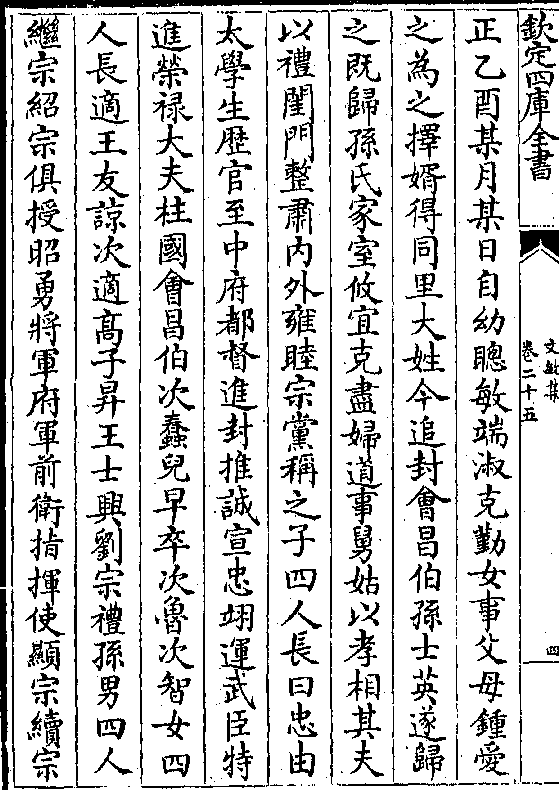 欽定四庫全書
文敏集
卷二十五
四
正乙酉某月某日自幼聰敏端淑克勤女事父母鍾愛
之為之擇婿得同里大姓今追封會昌伯孫士英遂歸
之既歸孫氏家室攸宜克盡婦道事舅姑以孝相其夫
以禮閨門整肅内外雍睦宗黨稱之子四人長曰忠由
太學生歴官至中府都督進封推誠宣忠翊運武臣特
進榮禄大夫柱國會昌伯次蠢兒早卒次魯次智女四
人長適王友諒次適髙子昇王士興劉宗禮孫男四人
繼宗紹宗俱授昭勇將軍府軍前衛指揮使顯宗續宗